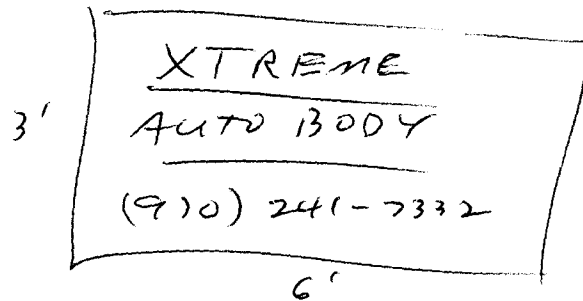 XTREME
3'
AUTO BODY
(970) 241-7332
6'